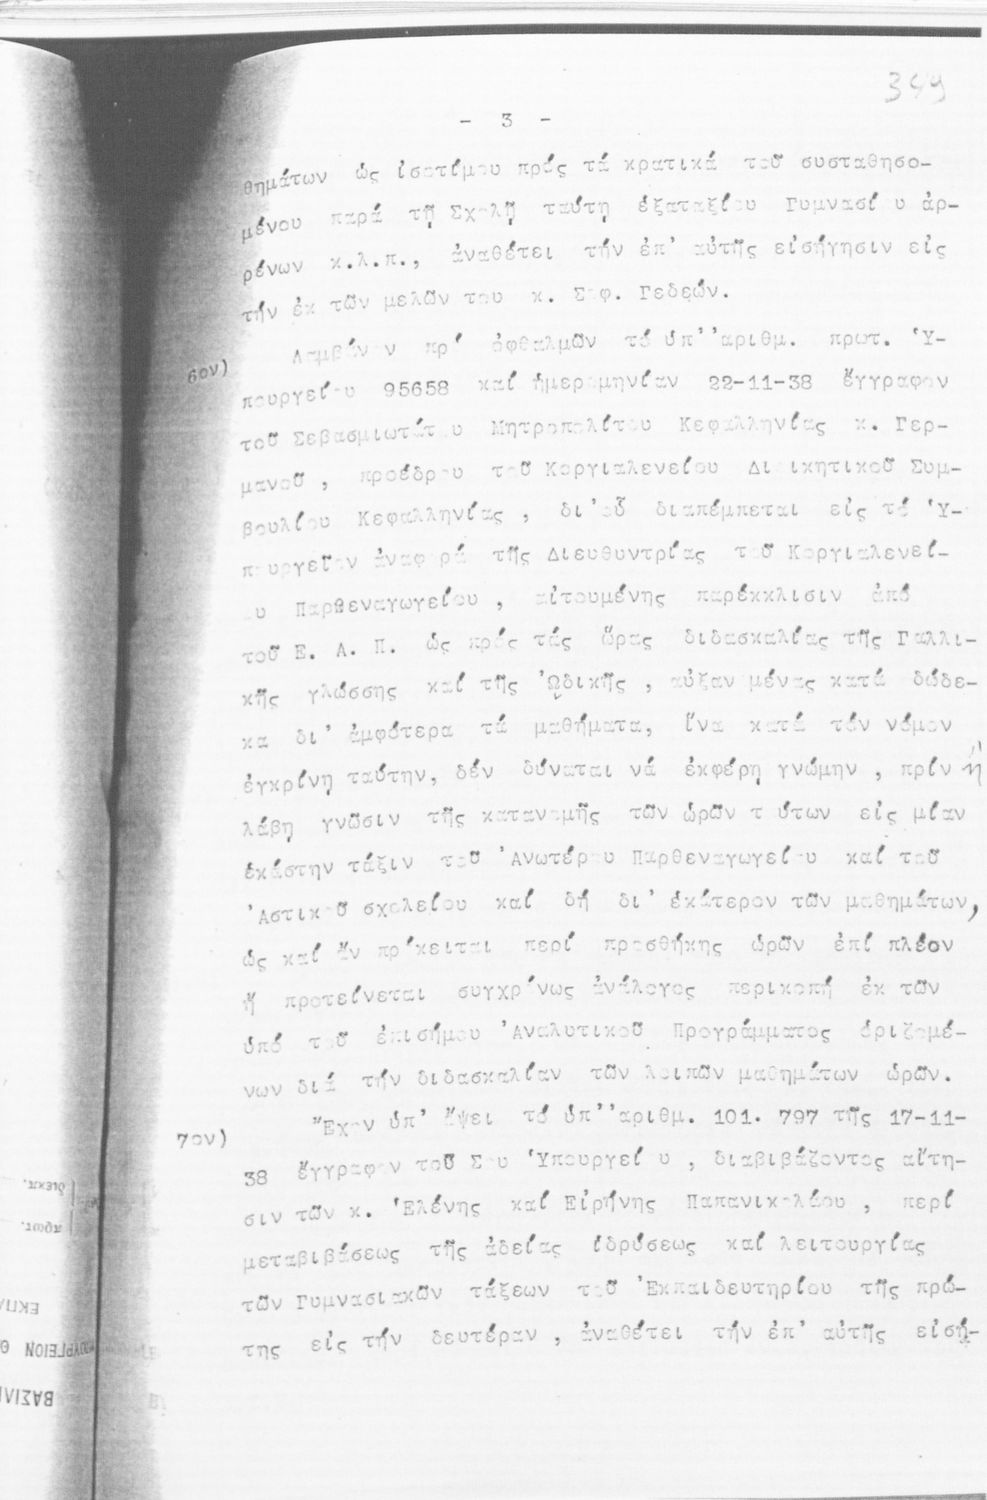 349
- 3 -
θημάτων ὡς ἰσοτίμου πρός τά κρατικά τοῦ συσταθησο-
μένου παρά τῇ Σχολῇ ταύτῃ ἑξαταξίου Γυμνασίου ἀρ-
ρένων κ.λ.π., ἀναθέτει τήν ἐπ' αὐτῆς εἰσήγησιν εἰς
τήν ἐκ τῶν μελῶν του κ. Σοφ. Γεδεών.
6ον) Λαμβάνον πρό ὀφθαλμῶν τό ὑπ''αριθμ. πρωτ. Ὑ-
πουργείου 95658 καί ἡμερομηνίαν 22-11-38 ἔγγραφον
τοῦ Σεβασμιωτάτου Μητροπολίτου Κεφαλληνίας κ. Γερ-
μανοῦ , προέδρου τοῦ Κοργιαλενείου Διοικητικοῦ Συμ-
βουλίου Κεφαλληνίας , δι'οὗ διαπέμπεται εἰς τό Ὑ-
πουργεῖον ἀναφορά τῆς Διευθυντρίας τοῦ Κοργιαλενεί-
ου Παρθεναγωγείου , αἰτουμένης παρέκκλισιν ἀπό
τοῦ Ε. Α. Π. ὡς πρός τάς ὥρας διδασκαλίας τῆς Γαλλι-
κῆς γλώσσης καί τῆς ᾨδικῆς , αὐξανομένας κατά δώδε-
κα δι' ἀμφότερα τά μαθήματα, ἵνα κατά τόν νόμον
ἐγκρίνῃ ταύτην, δέν δύναται νά ἐκφέρῃ γνώμην , πρίν ἤ
λάβῃ γνῶσιν τῆς κατανομῆς τῶν ὡρῶν τούτων εἰς μίαν
ἑκάστην τάξιν τοῦ Ἀνωτέρου Παρθεναγωγείου καί τοῦ
Ἀστικοῦ σχολείου καί δή δι' ἑκάτερον τῶν μαθημάτων,
ὡς καί ἄν πρόκειται περί προσθήκης ὡρῶν ἐπί πλέον
ἤ προτείνεται συγχρόνως ἀνάλογος περικοπή ἐκ τῶν
ὑπό τοῦ ἐπισήμου Ἀναλυτικοῦ Προγράμματος ὁριζομέ-
νων διά τήν διδασκαλίαν τῶν λοιπῶν μαθημάτων ὡρῶν.
7ον) Ἔχον ὑπ' ὄψει τό ὑπ''αριθμ. 101. 797 τῆς 17-11-
38 ἔγγραφον τοῦ Σου Ὑπουργείου , διαβιβάζοντος αἴτη-
σιν τῶν κ. Ἑλένης καί Εἰρήνης Παπανικολάου , περί
μεταβιβάσεως τῆς ἀδείας ἱδρύσεως καί λειτουργίας
τῶν Γυμνασιακῶν τάξεων τοῦ Ἐκπαιδευτηρίου τῆς πρώ-
της εἰς τήν δευτέραν , ἀναθέτει τήν ἐπ' αὐτῆς εἰσή-
διεκπ.
πρωτ.